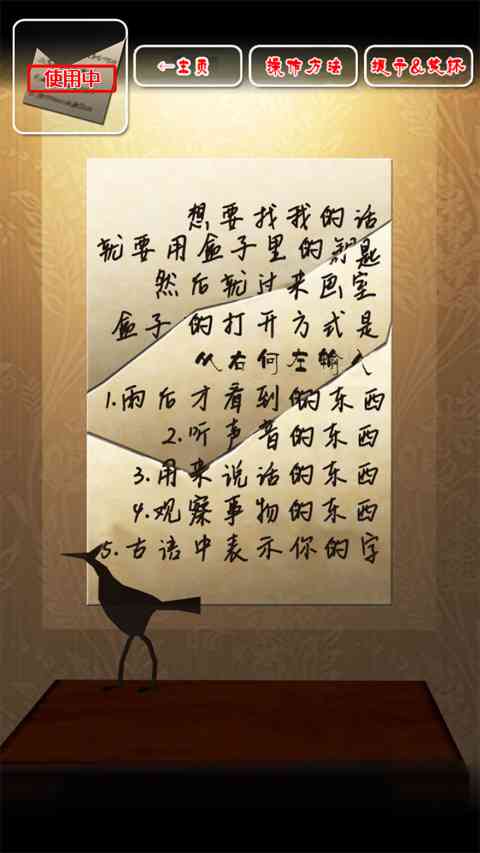 使用中
←主页
操作方法
提示&关怀
想要找我的话
就要用盒子里的钥匙
然后就过来画室
盒子的打开方式是
从右向左输入
1.雨后才看到的东西
2.听声音的东西
3.用来说话的东西
4.观察事物的东西
5.古语中表示你的字